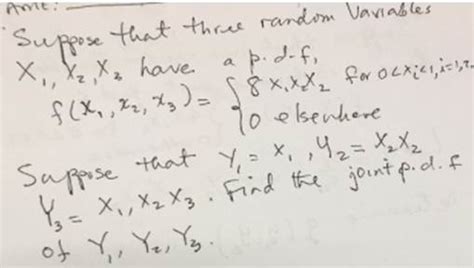 Name:
Suppose that three random variables
X₁, X₂, X₃ have a p.d.f,
f(x₁, x₂, x₃) = { 8 x₁x₂x₂ for 0<xᵢ<1, i=1,2,
0 elsewhere
Suppose that Y₁ = X₁, Y₂ = X₂X₂
Y₃ = X₁, X₂ X₃. Find the joint p.d.f
of Y₁, Y₂, Y₃.